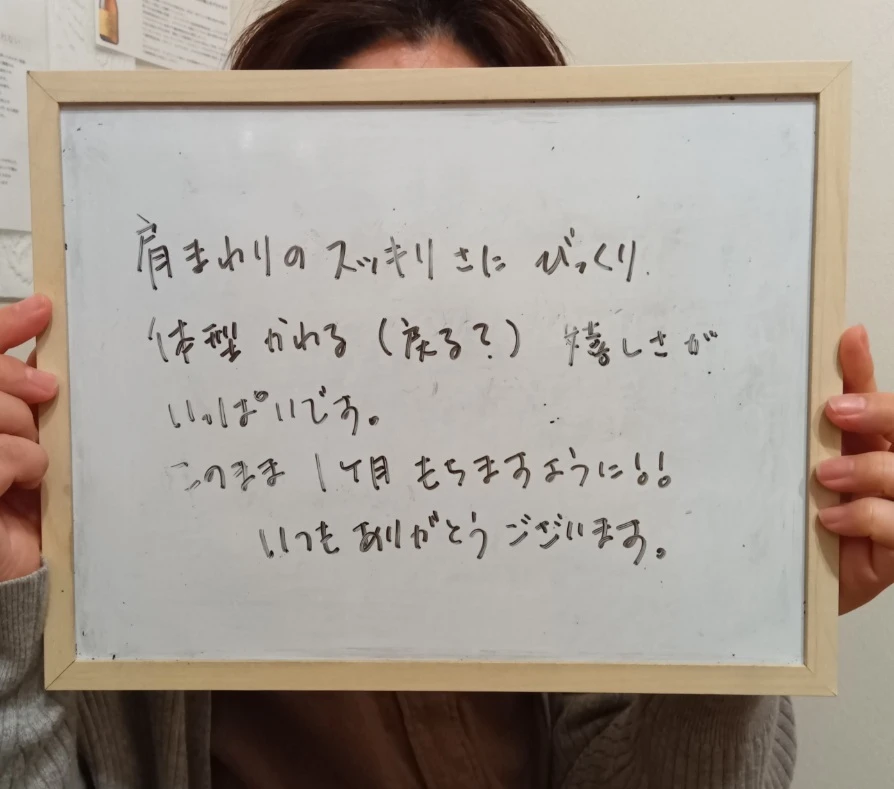 肩まわりのスッキリさに びっくり.
体型かわる(戻る?) 嬉しさが
いっぱいです。
このまま 1ケ月もちますように!!
いつもありがとうございます。